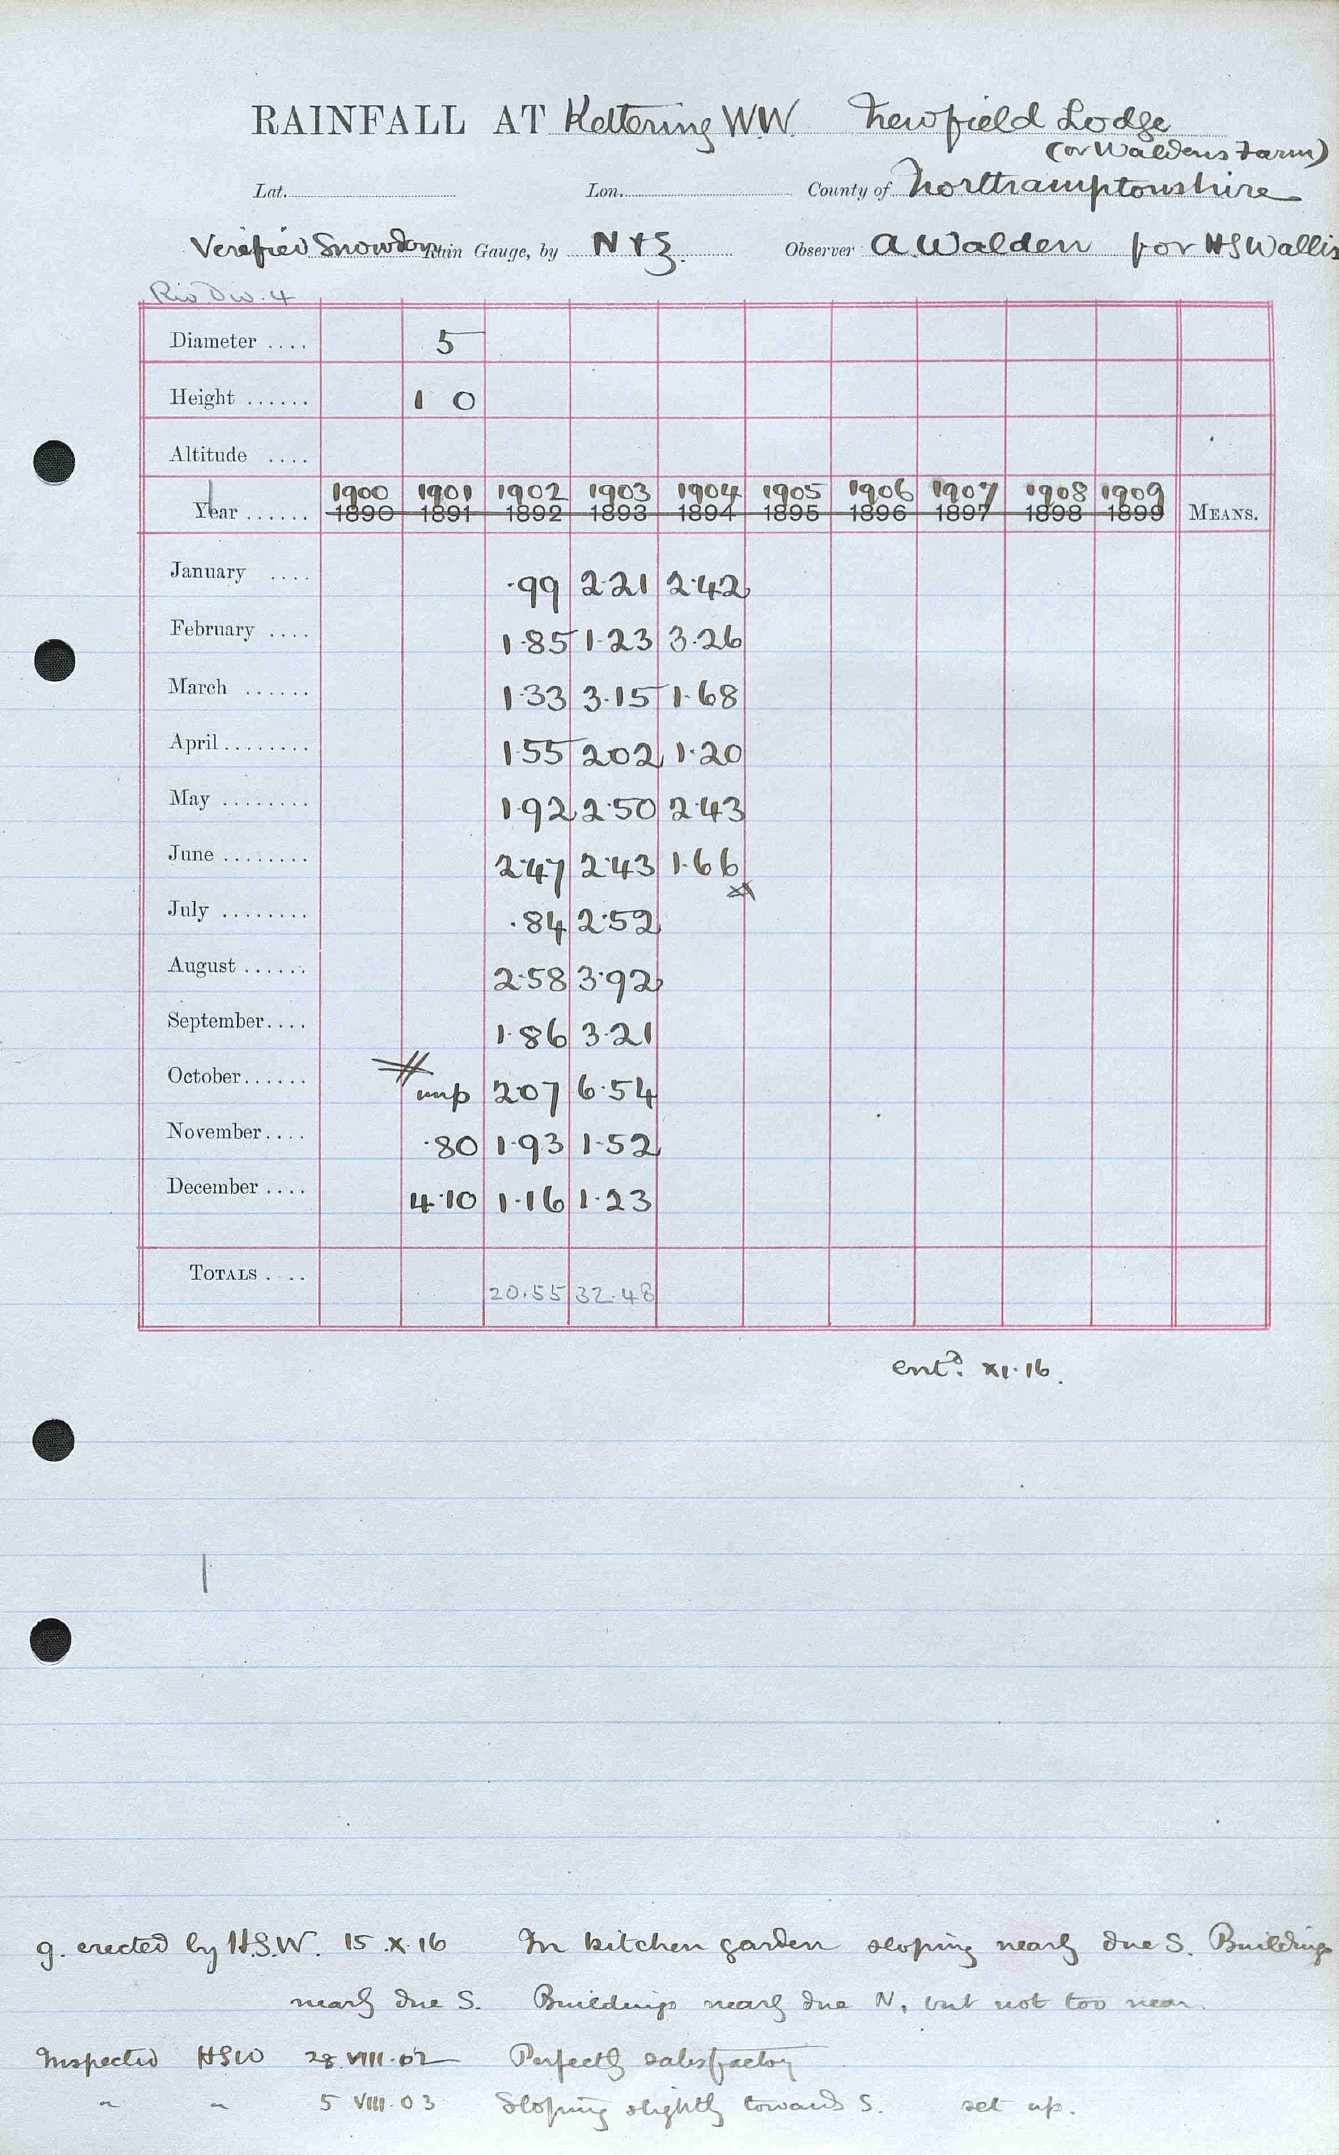 RAINFALL AT Kettering W.W. Newfield Lodge
(or Waldens Farm)
Lat. Lon. County of Northamptonshire
Verified Snowdon Rain Gauge, by N & Z. Observer A. Walden for HSWallis
Riv Div. 4
Diameter .... 5
Height ...... 1 0
Altitude ....
1900 1901 1902 1903 1904 1905 1906 1907 1908 1909
Year ...... 1890 1891 1892 1893 1894 1895 1896 1897 1898 1899 MEANS.
January .... .99 2.21 2.42
February .... 1.85 1.23 3.26
March ...... 1.33 3.15 1.68
April ........ 1.55 2.02 1.20
May ........ 1.92 2.50 2.43
June ........ 2.47 2.43 1.66
July ........ .84 2.52
August ...... 2.58 3.92
September.... 1.86 3.21
October...... imp 2.07 6.54
November.... .80 1.93 1.52
December .... 4.10 1.16 1.23
TOTALS .... 20.55 32.48
entd. XI.16.
g. erected by H.S.W. 15.X.16 In kitchen garden sloping nearly due S. Buildings
nearly due S. Buildings nearly due N, but not too near.
Inspected HSW 28.VIII.02 Perfectly satisfactory
" " 5 VIII.03 Sloping slightly towards S. set up.